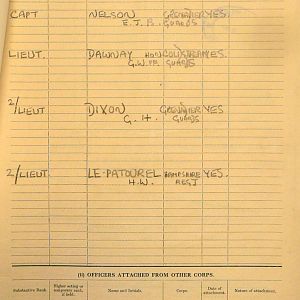 CAPT NELSON GRENADIER YES.
E. J. B. GUARDS
LIEUT. DAWNAY HON COLDSTREAM YES.
G.W.FF. GUARDS
2/LIEUT DIXON GRENADIER YES
G. H. GUARDS
2/LIEUT. LE-PATOUREL HAMPSHIRE YES.
H.W. REGT
(ii) OFFICERS ATTACHED FROM OTHER CORPS.
Substantive Rank. Higher acting or temporary rank, if held. Name and Initials. Corps. Date of attachment. Nature of attachment.